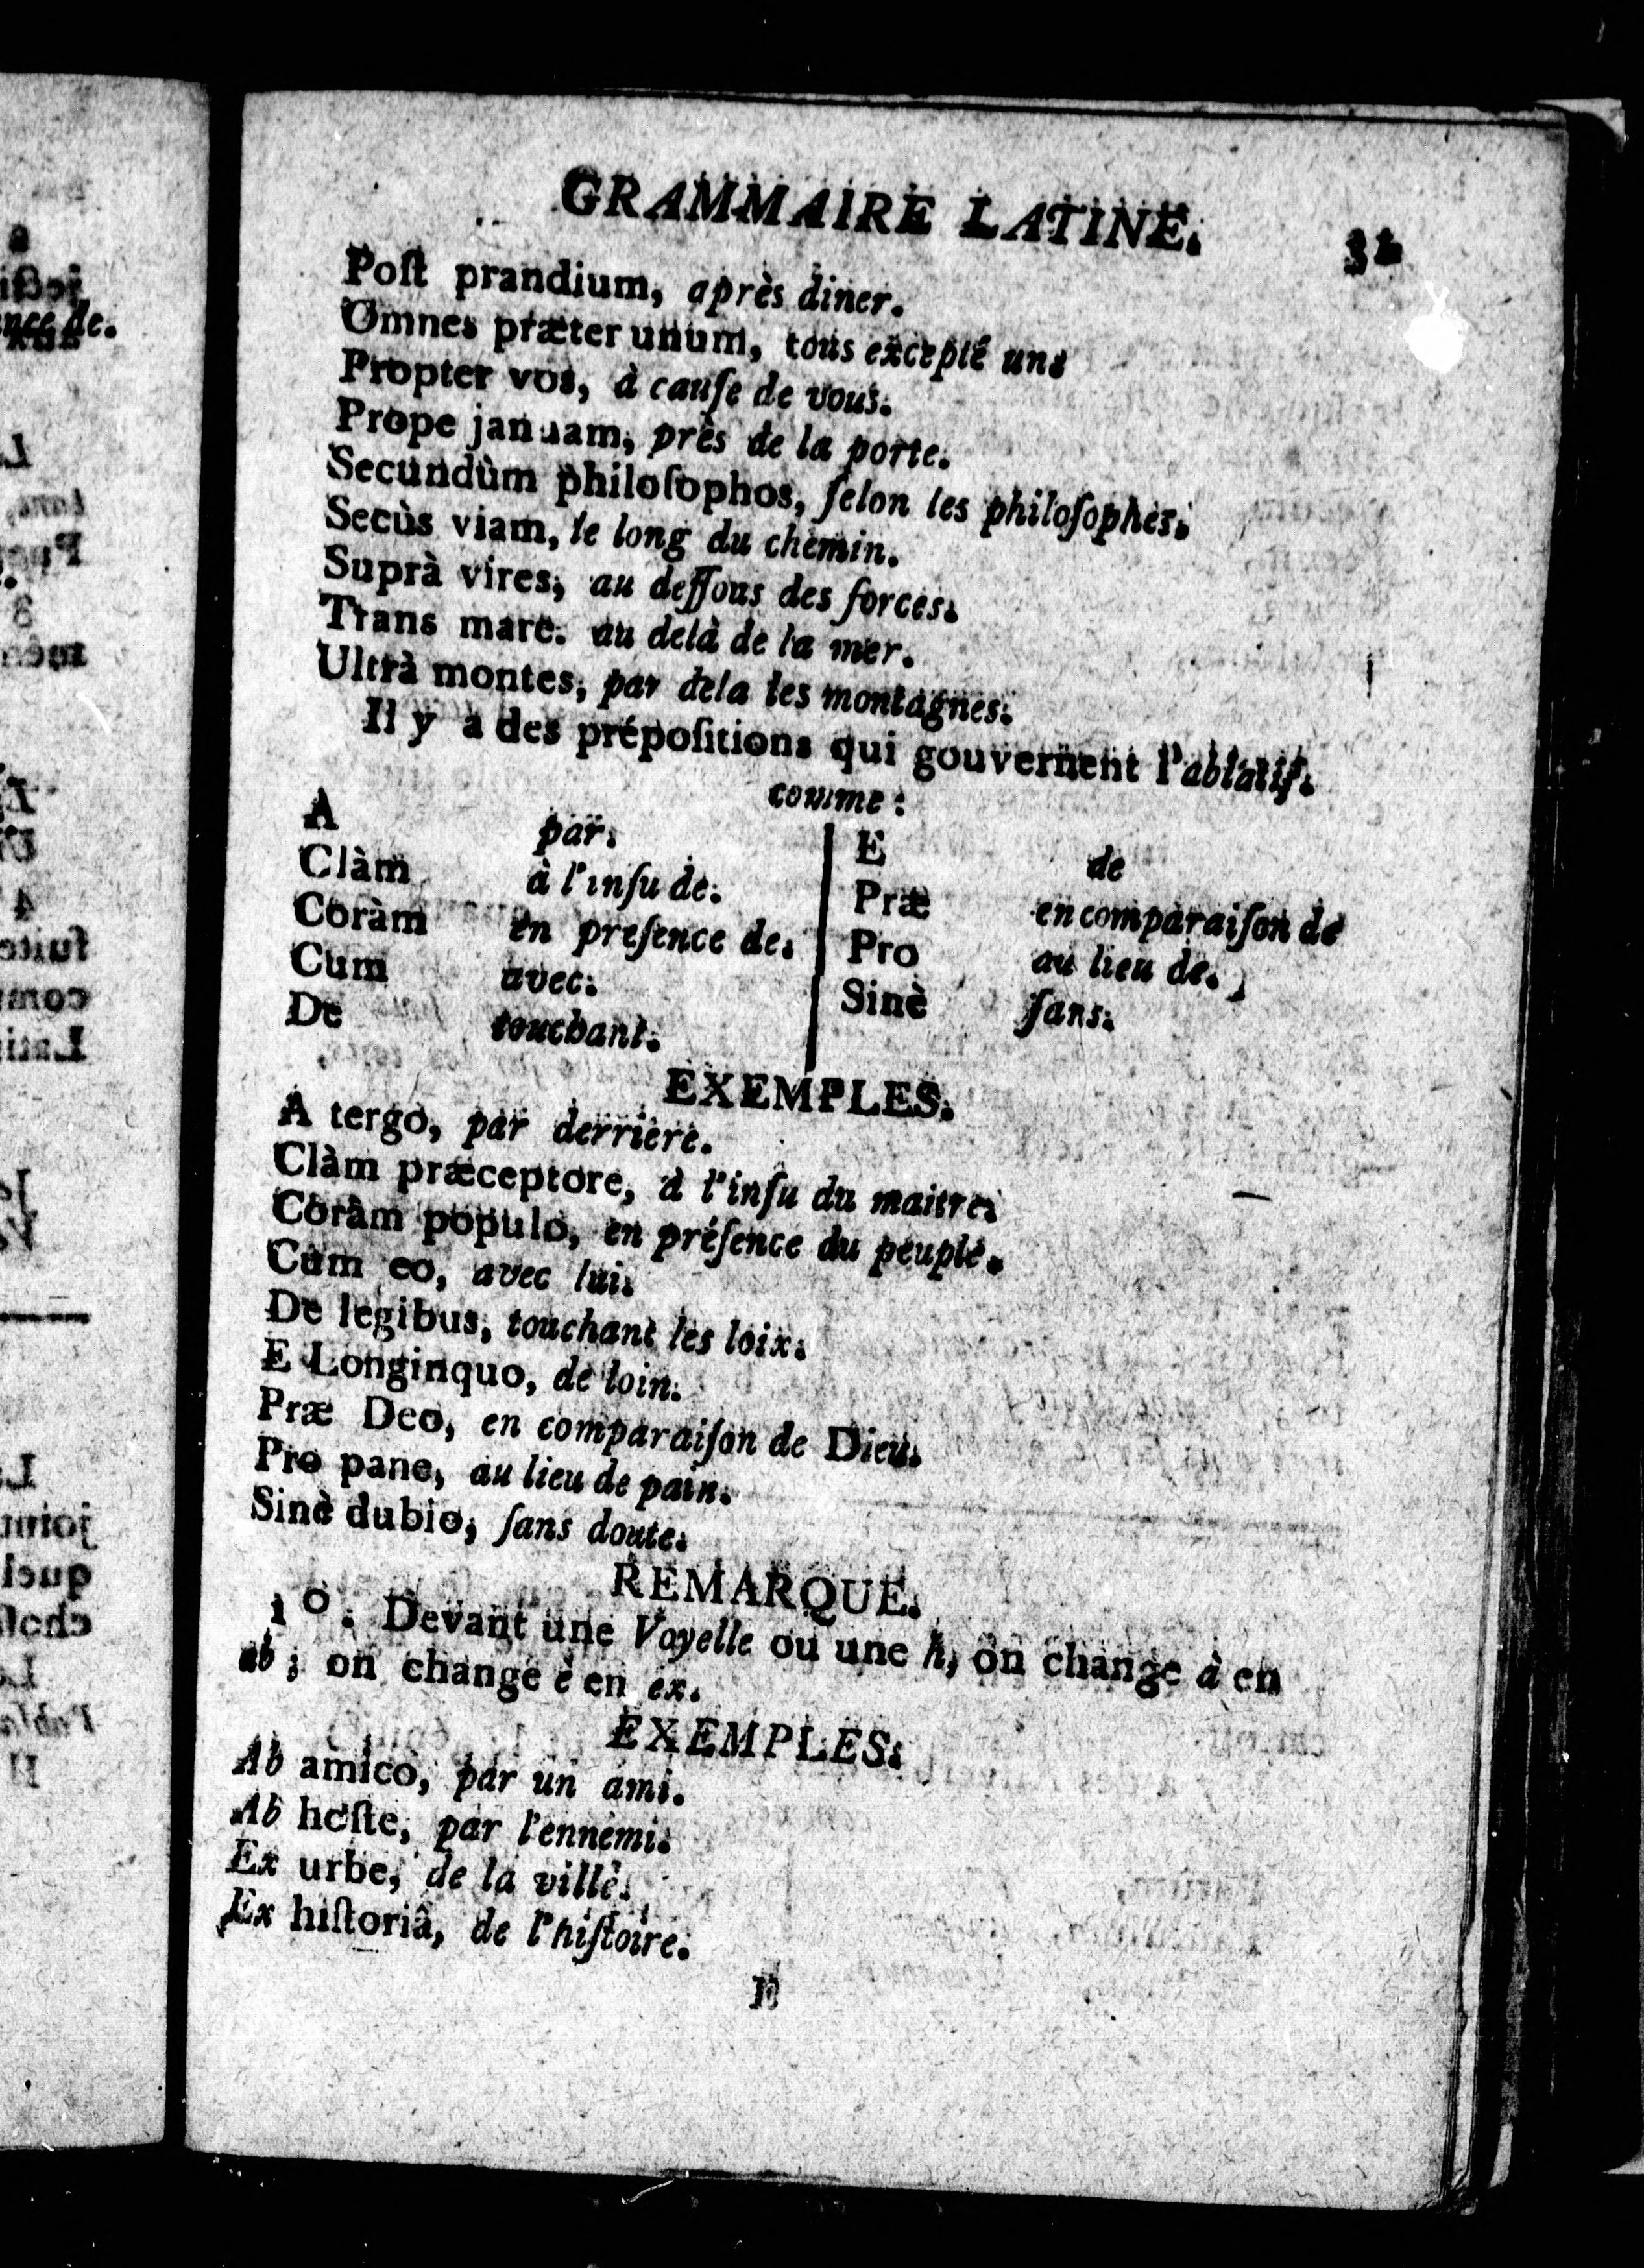 GRAMMAIRE LATINE.
Poſt prandium, après diner.
Omnes præter unum, tous excepté un.
Propter vos, à cauſe de vous.
Prope januam, près de la porte.
Secundùm philoſophos, ſelon les philoſophes.
Secùs viam, le long du chemin.
Suprà vires, au deſſous des forces.
Trans mare. au delà de la mer.
Ultrà montes, par dela les montagnes.
Il y a des prépoſitions qui gouvernent l'ablatif.
comme :
A par. | E de
Clàm à l'inſu de. | Præ en comparaiſon de
Coràm en preſence de. | Pro au lieu de.
Cum avec. | Sinè ſans.
De touchant.
EXEMPLES.
A tergo, par derriere.
Clàm præceptore, à l'inſu du maitre.
Coràm populo, en préſence du peuple.
Cum eo, avec lui.
De legibus, touchant les loix.
E Longinquo, de loin.
Præ Deo, en comparaiſon de Dieu.
Pro pane, au lieu de pain.
Sinè dubio, ſans doute.
REMARQUE.
1º. Devant une Voyelle ou une h, on change à en
ab ; on change è en ex.
EXEMPLES.
Ab amico, par un ami.
Ab hoſte, par l'ennemi.
Ex urbe, de la ville.
Ex hiſtoriâ, de l'hiſtoire.